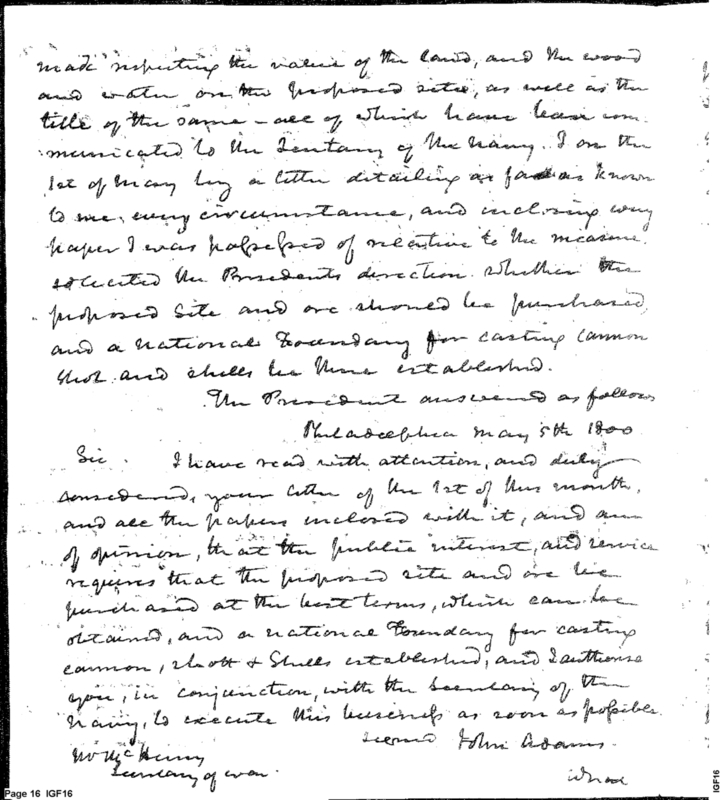 made respecting the value of the land, and the wood
and water on the proposed site, as well as the
title of the same - all of which have been com
municated to the Secretary of the Navy. I on the
1st of May by a letter detailing as far as known
to me, every circumstance, and inclosing every
paper I was possessed of relative to the measure
solicited the Presidents direction whether the
proposed Site and ore should be purchased,
and a national Foundary for casting cannon
shot and shells be there established.
The President answered as follows
Philadelphia May 5th 1800
Sir. I have read with attention, and duly
considered, your letter of the 1st of this month,
and all the papers inclosed with it, and am
of opinion, that the public interest, and service
requires that the proposed site and ore be
purchased at the best terms, which can be
obtained, and a national Foundary for casting
cannon, shott & Shells established, and I authorise
you, in conjunction, with the Secretary of the
Navy, to execute this business as soon as possible.
signed John Adams.
Mr McHenry
Secretary of war.
Page 16 IGF16
IGF16